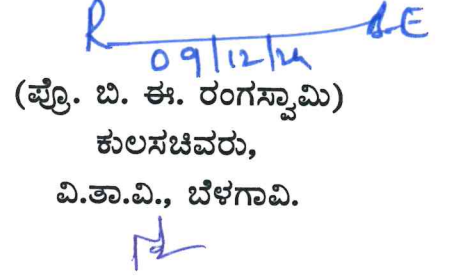 09/12/24
(ಪ್ರೊ. ಬಿ. ಈ. ರಂಗಸ್ವಾಮಿ)
ಕುಲಸಚಿವರು,
ವಿ.ತಾ.ವಿ., ಬೆಳಗಾವಿ.